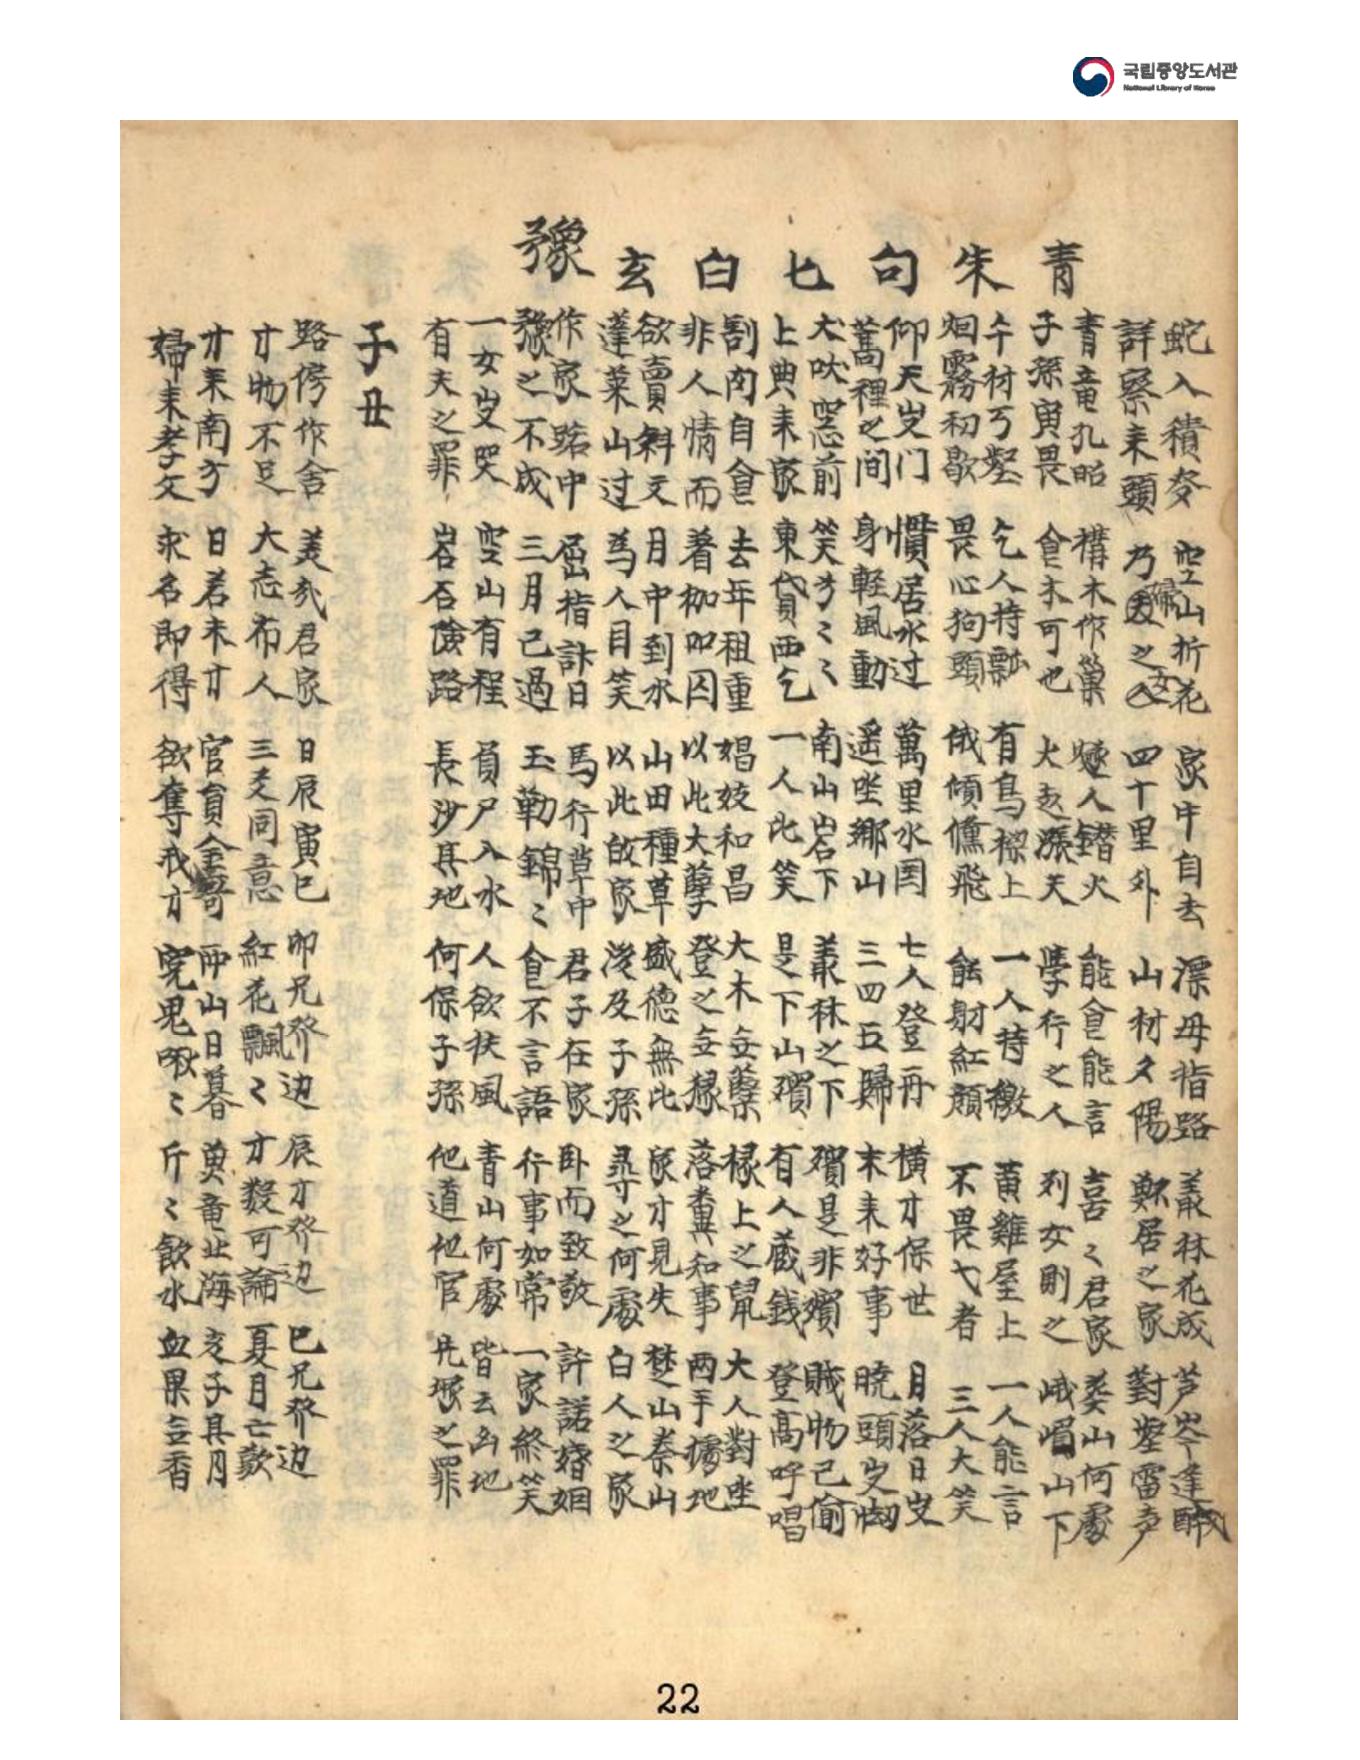 국립중앙도서관
National Library of Korea
青 朱 句 匕 白 玄 豫
蛇入積麥 空山折花 家中自去 漂母指路 叢林花成 芦岑逢
詳察来頭 乃之 四十里外 山村夕陽 鄭居之家 對壁雷声
青竜孔昭 構木作巢 燧人鑽火 能食能言 喜〻君家 葬山何處
子孫寅畏 食木可也 火起漲天 學行之人 列女則之 峨嵋山下
午村丂壑 乞人持瓢 有鳥樑上 一人持繳 黃雞屋上 一人能言
烟霧初歇 畏心狗頭 俄傾飛 能射紅顔 不畏弋者 三人大笑
仰天岁门 慣居水过 萬里水国 七人登舟 橫才保世 月落日岁
蒿裡之間 身軽風動 遥坐鄉山 三四五歸 末来好事 曉頭岁
犬吠窓前 笑〻〻 南山岩下 叢林之下 殯是非殯 賊物已偷
上典来家 東貸西乞 一人此笑 是下山殯 有人蔵錢 登高呼唱
割肉自食 去年租重 娼妓和昌 大木無蘖 椽上之鼠 大人對坐
非人情而 着枷即囚 以此大孽 登之無椽 落糞知事 两手據地
欲賣斜文 月中到水 山田種草 盛德無比 家才見失 楚山秦山
蓬莱山过 為人目笑 以此敗家 後及子孫 尋之何處 白人之家
作家路中 屈指計日 馬行草中 君子在家 卧而致敬 許諾婚姻
豫之不成 三月已過 玉勒錦〻 食不言語 行事如常 一家終笑
一女岁哭 空山有程 負尸入水 人欲扶風 青山何處 皆云凶地
有夫之罪 岩石險路 長沙其地 何保子孫 他道他官 先塚之罪
子丑
路傍作舍 美哉君家 日辰寅巳 卯兄癸边 辰才癸边 巳兄癸边
寸物不足 大志布人 三爻同意 紅花飄〻 才殺可論 夏月亡歎
才来南方 日若未才 官貟金哥 所山日暮 黄竜北海 玄子具月
婦来孝文 求名即得 欲奪我才 寃鬼啾〻 斤〻飲水 血果豈香
22